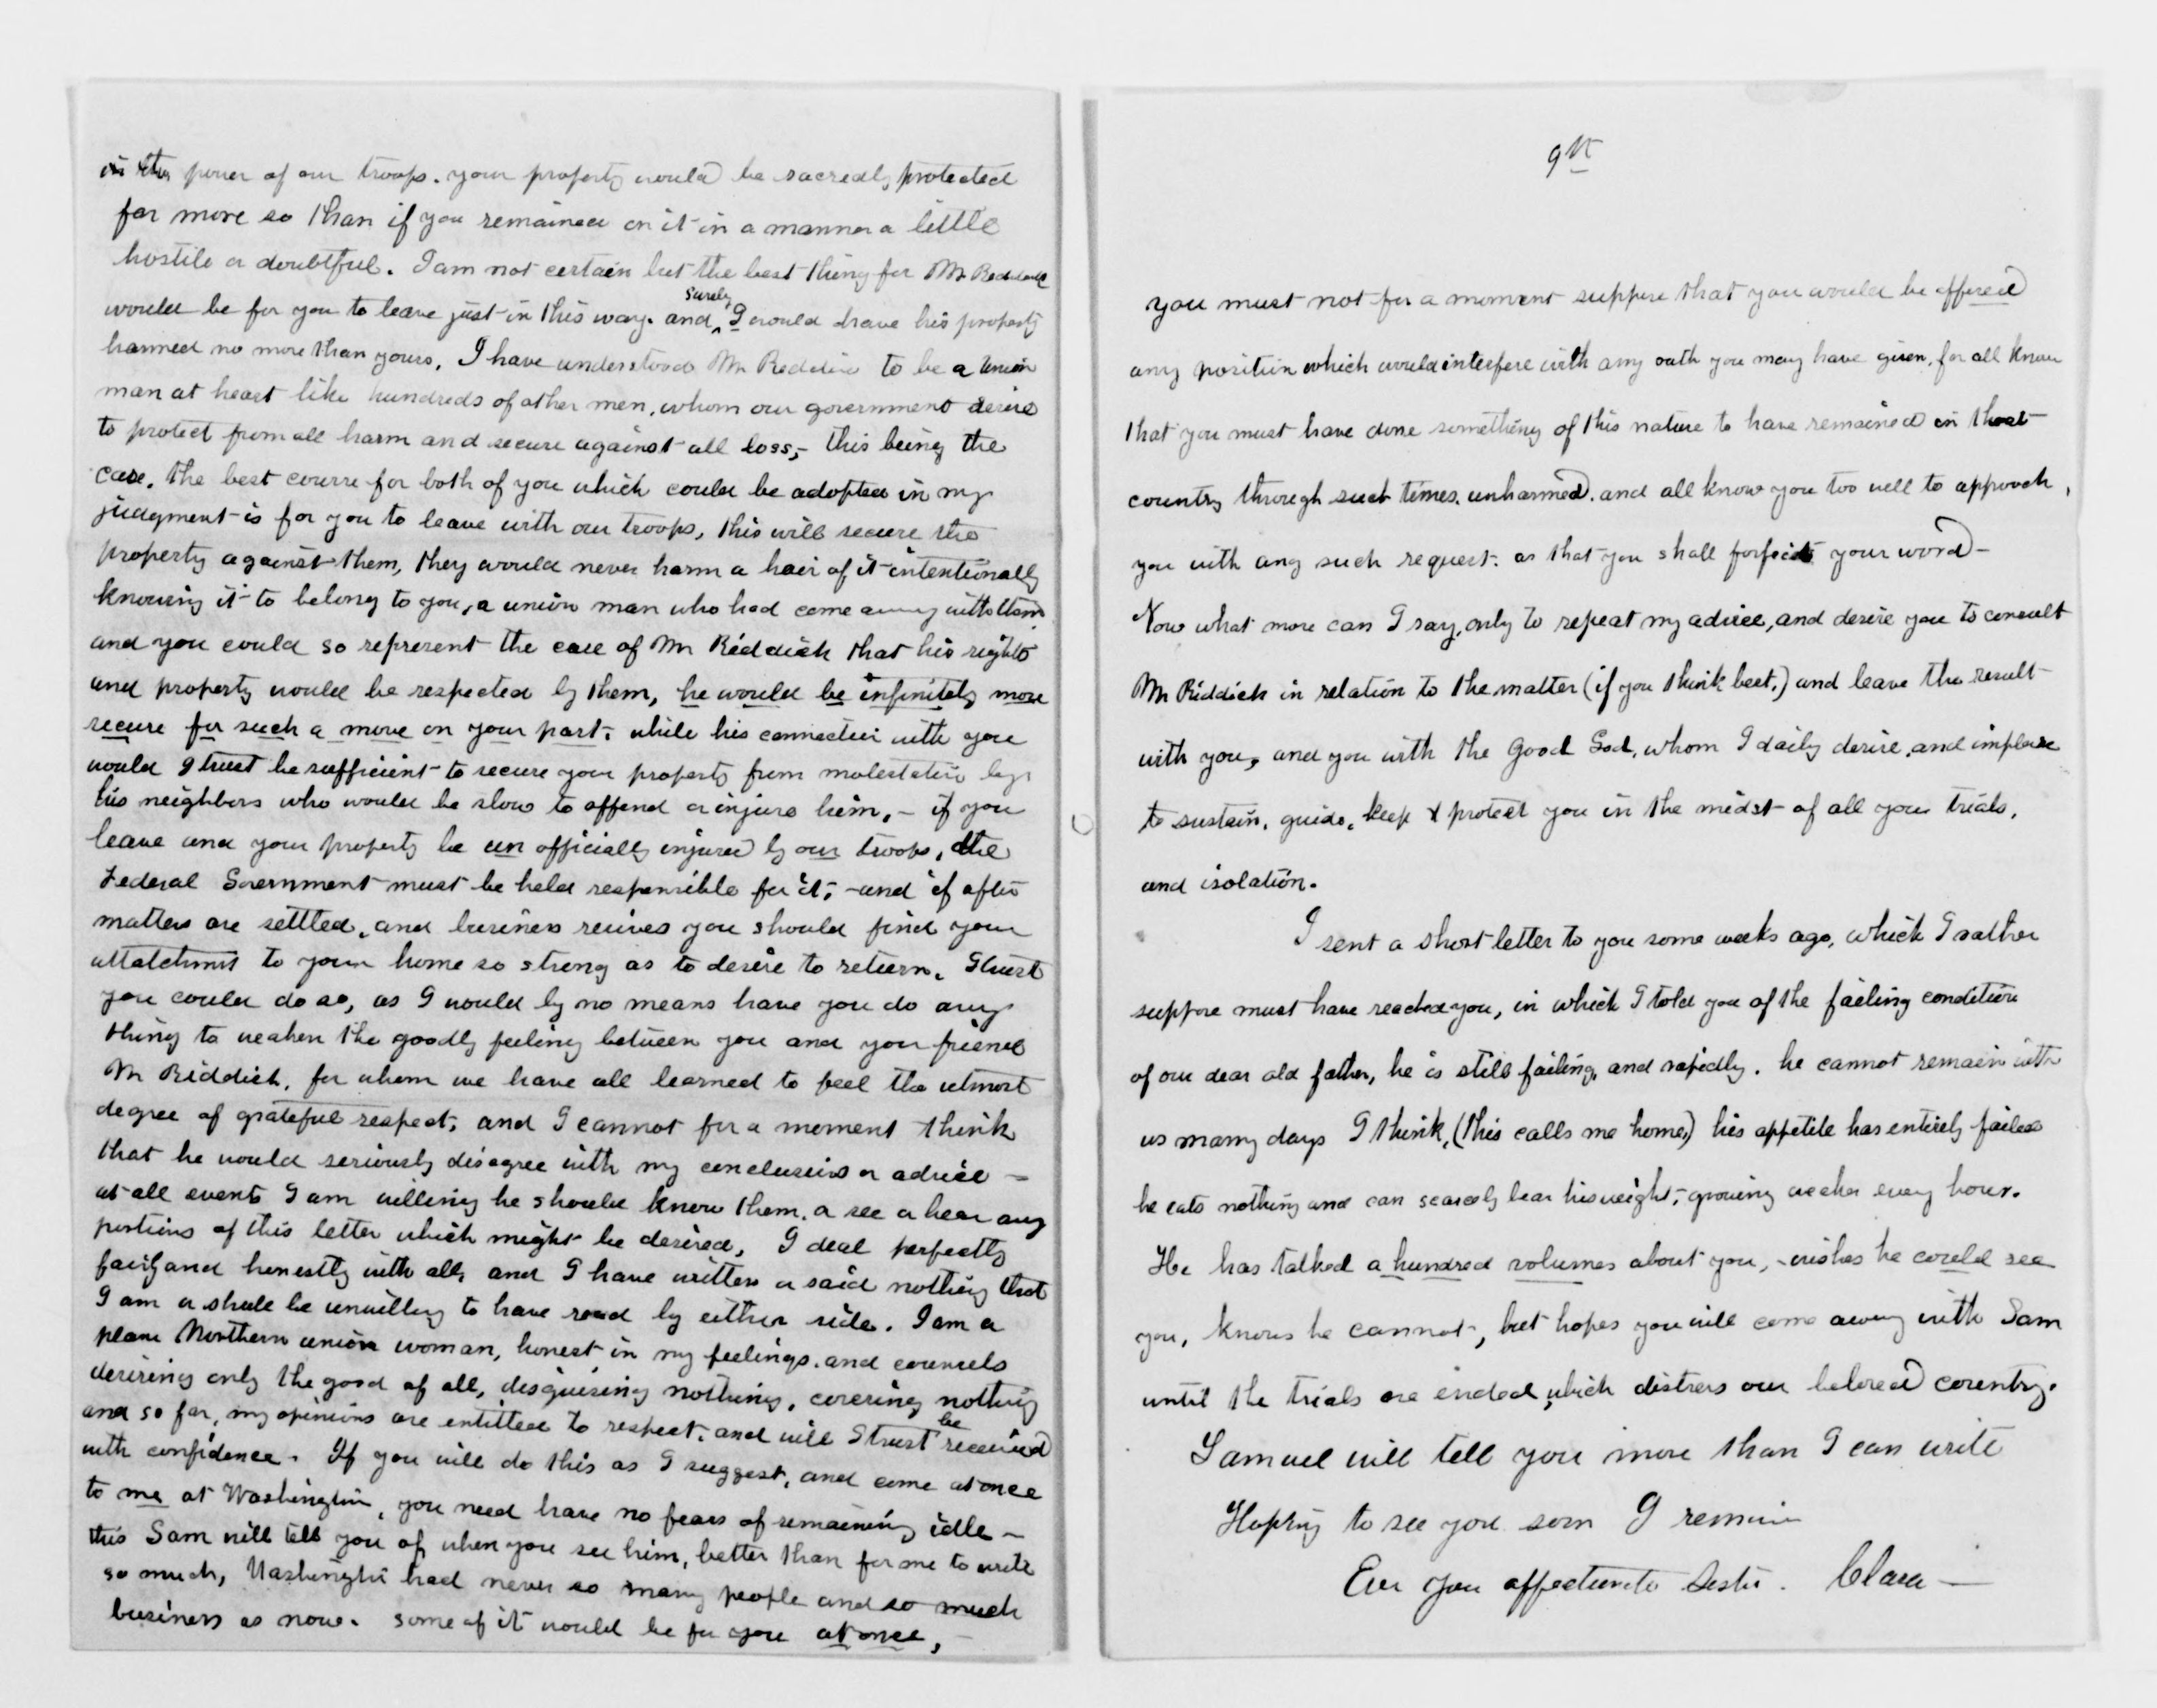 in the power of our troops. your property would be sacredly protected
far more so than if you remained on it in a manner a little
hostile or doubtful. I am not certain but the best thing for Mr Reddick
would be for you to leave just in this way. and surely I would have his property
harmed no more than yours. I have understood Mr Reddick to be a union
man at heart like hundreds of other men, whom our government desires
to protect from all harm and secure against all loss,- this being the
case, the best course for both of you which could be adopted in my
judgment is for you to leave with our troops, this will secure the
property against them, they would never harm a hair of it intentionally
knowing it to belong to you, a union man who had come away with them
and you could so represent the case of Mr Riddick that his rights
and property would be respected by them, he would be infinitely more
secure for such a move on your part, while his connection with you
would I trust be sufficient to secure your property from molestation by
his neighbors who would be slow to offend or injure him, - if you
leave and your property be un officially injured by our troops, the
Federal Government must be held responsible for it, - and if after
matters are settled, and business revives you should find your
attatchment to your home so strong as to desire to return, I trust
you could do so, as I would by no means have you do any
thing to weaken the goodly feeling between you and your friend
Mr Riddick, for whom we have all learned to feel the utmost
degree of grateful respect, and I cannot for a moment think
that he would seriously disagree with my conclusions or advice -
at all events I am willing he should know them, or see or hear any
portions of this letter which might be desired, I deal perfectly
fairly and honestly with all, and I have written or said nothing that
I am or shall be unwilling to have read by either side. I am a
plain Northern union woman, honest in my feelings, and counsels
desiring only the good of all, disguising nothing, covering nothing
and so far, my opinions are entitled to respect, and will I trust be received
with confidence. If you will do this as I suggest, and come at once
to me at Washington, you need have no fears of remaining idle -
this Sam will tell you of when you see him, better than for me to write
so much, Washington had never so many people and so much
business as now. some of it would be for you at once, -
9th
you must not for a moment suppose that you would be offered
any position which would interfere with any oath you may have given, for all know
that you must have done something of this nature to have remained in that
country through such times, unharmed, and all know you too well to approach,
you with any such request, as that you shall forfeit your word -
Now what more can I say, only to repeat my advice, and desire you to consult
Mr Riddick in relation to the matter (if you think best,) and leave the result
with you, and you with the Good God, whom I daily desire, and implore
to sustain, guide, keep & protect you in the midst of all your trials,
and isolation.
I sent a short letter to you some weeks ago, which I rather
suppose must have reached you, in which I told you of the failing condition
of our dear old father, he is still failing, and rapidly. he cannot remain with
us many days I think, (this calls me home,) his appetite has entirely failed
he eats nothing and can scarcely bear his weight,- growing weaker every hour.
He has talked a hundred volumes about you, - wishes he could see
you, knows he cannot, but hopes you will come away with Sam
until the trials are ended which distress our beloved country.
Samuel will tell you more than I can write
Hoping to see you soon I remain
Ever your affectionate Sister. Clara -